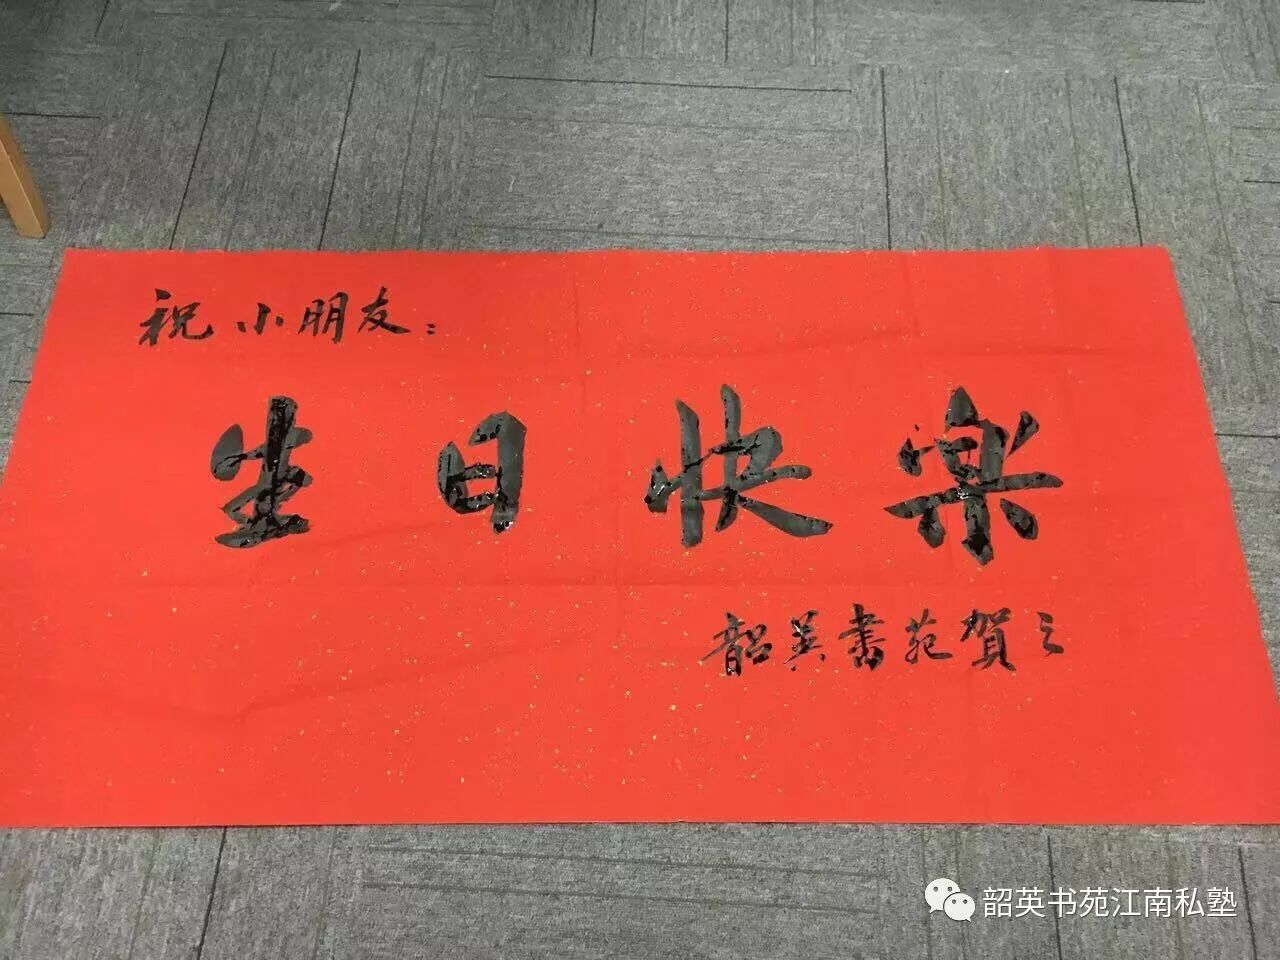 祝小朋友：
生日快樂
韶英書苑賀之
韶英书苑江南私塾